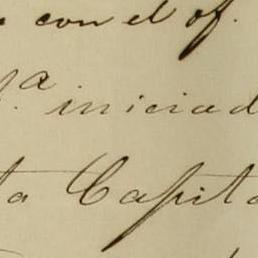 con el of.
a iniciad
ta Capita